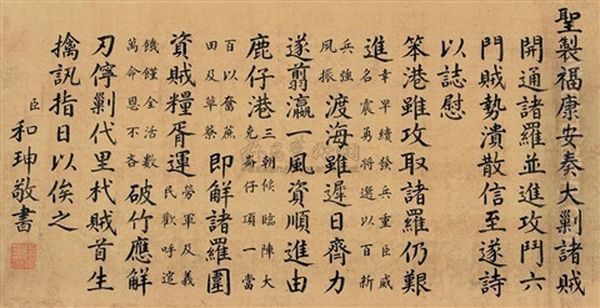 聖製福康安奏大剿諸賊
開通諸羅並進攻鬥六
門賊勢潰散信至遂詩
以誌慰
笨港雖攻取諸羅仍艱
進幸早續發兵重臣威名震將選以百
兵強夙振渡海雖遲日齊力
遂翦瀛一風資順進由
鹿仔港三朝候臨陣大克崙仔頂一當
百以奮蔗田及草藔即解諸羅圍
資賊糧胥運勞軍及義民歡呼迓
饑饉全活數萬命恩不吝破竹應解
刃儜剿代里杙賊首生
擒訊指日以俟之
臣和珅敬書